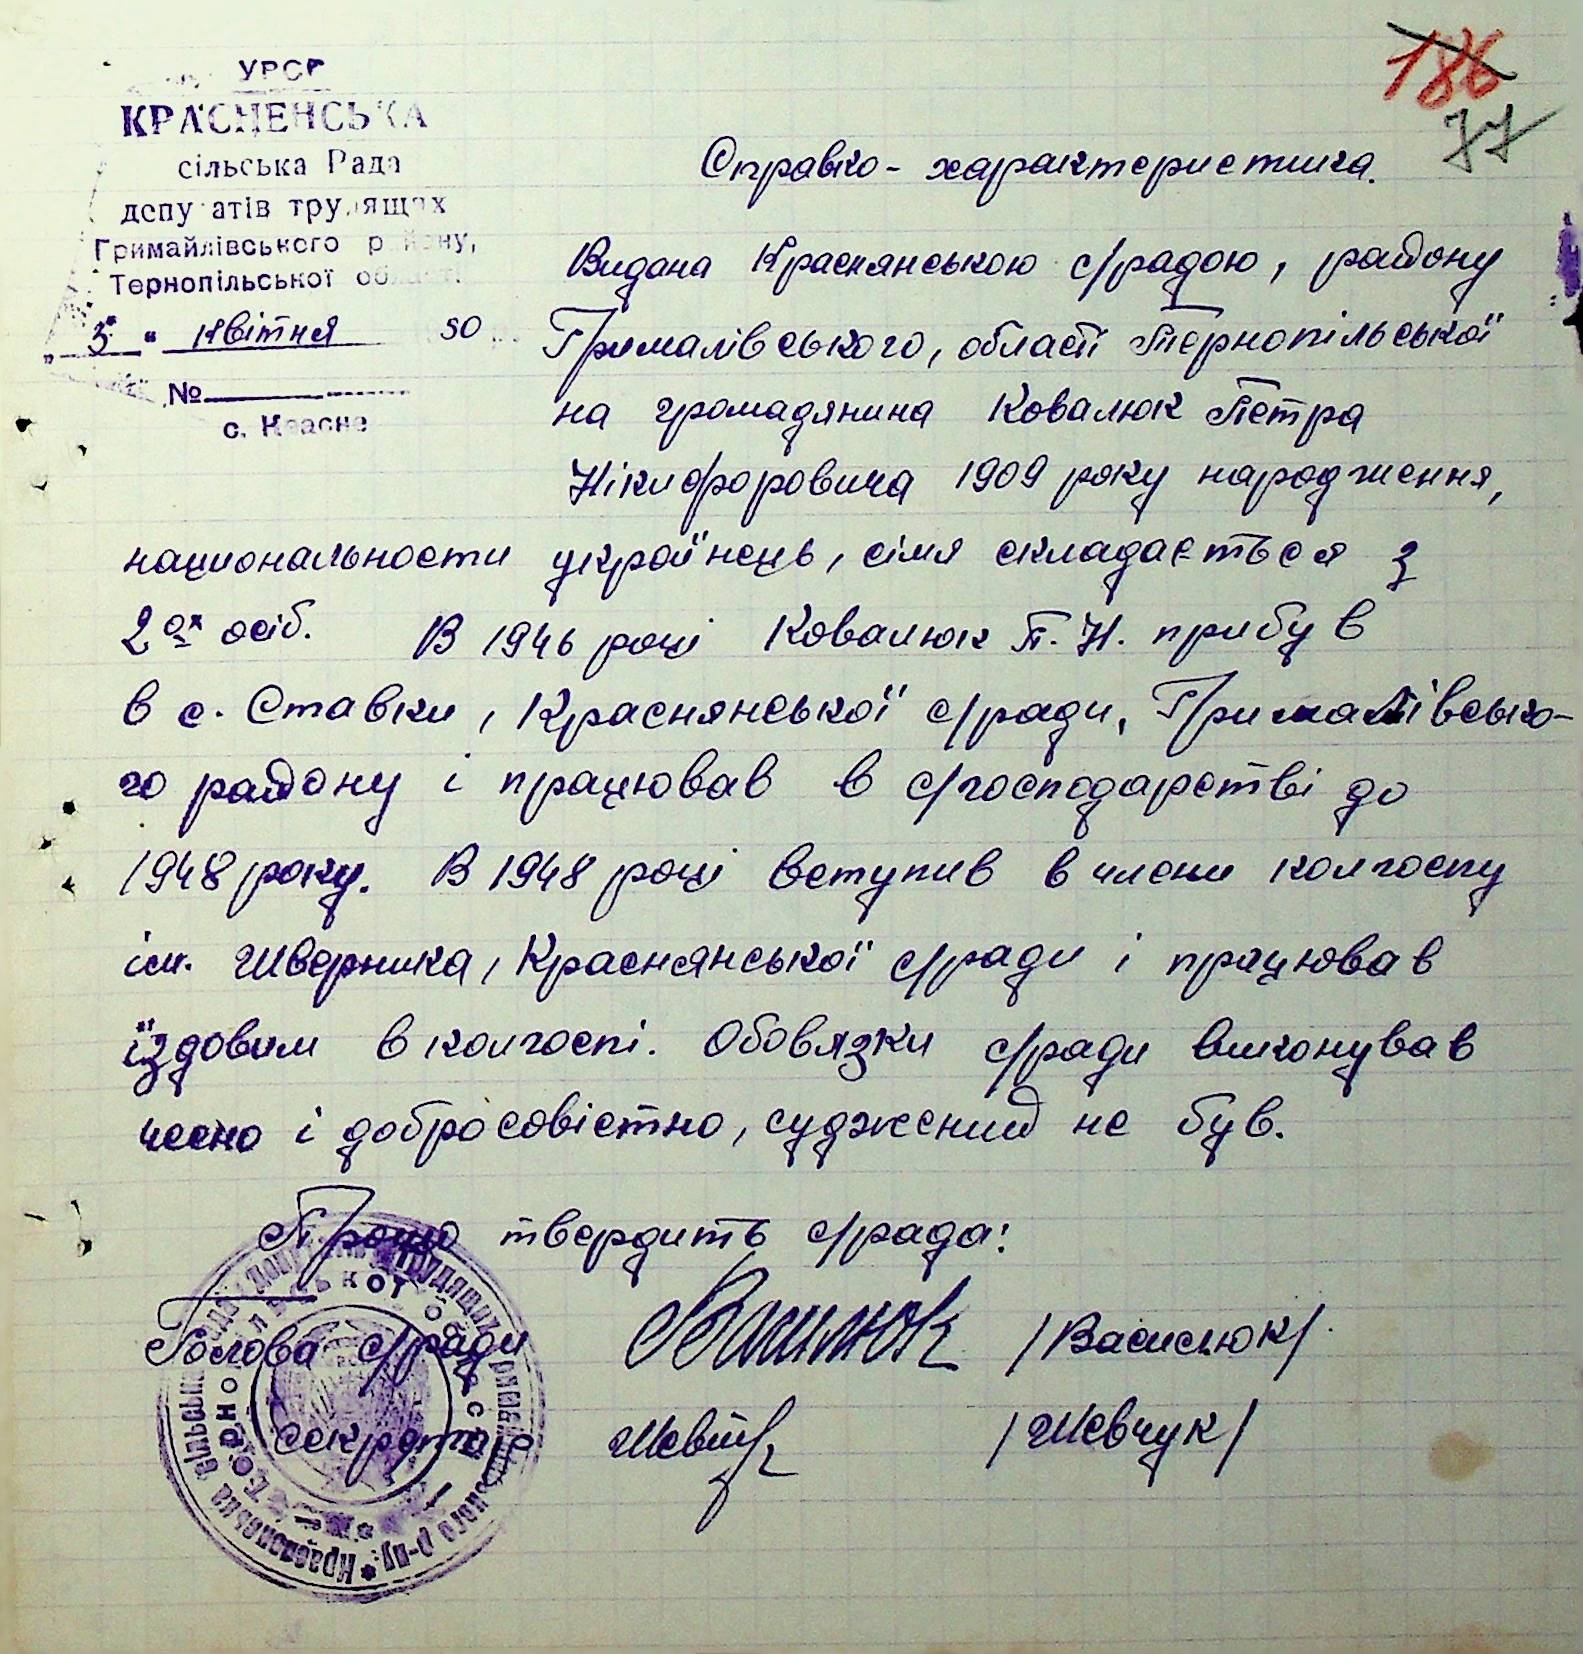 УРСР
КРАСНЕНСЬКА
сільська Рада
депутатів трудящих
Гримайлівського району,
Тернопільської області
„3" квітня 50 р.
№
с. Красне
186
77
Справко-характеристика.
Видана Краснянською с/радою, району
Грималівського, області Тернопільської
на громадянина Ковалюк Петра
Нікифоровича 1909 року народження,
национальности українець, сімя складається з
2ох осіб. В 1946 році Ковалюк П. Н. прибув
в с. Ставки, Краснянської с/ради, Грималівсько-
го району і працював в с/господарстві до
1948 року. В 1948 році вступив в члени колгоспу
ім. Шверника, Краснянської с/ради і працював
їздовим в колгоспі. Обовязки с/ради виконував
чесно і добросовістно, судженим не був.
Прощо твердить с/рада:
Голова с/ради Василюк /Василюк/.
секретар Шевчук /Шевчук/
Красненська сільська Рада депутатів трудящих Гримайлівського р-ну
Тернопільської області